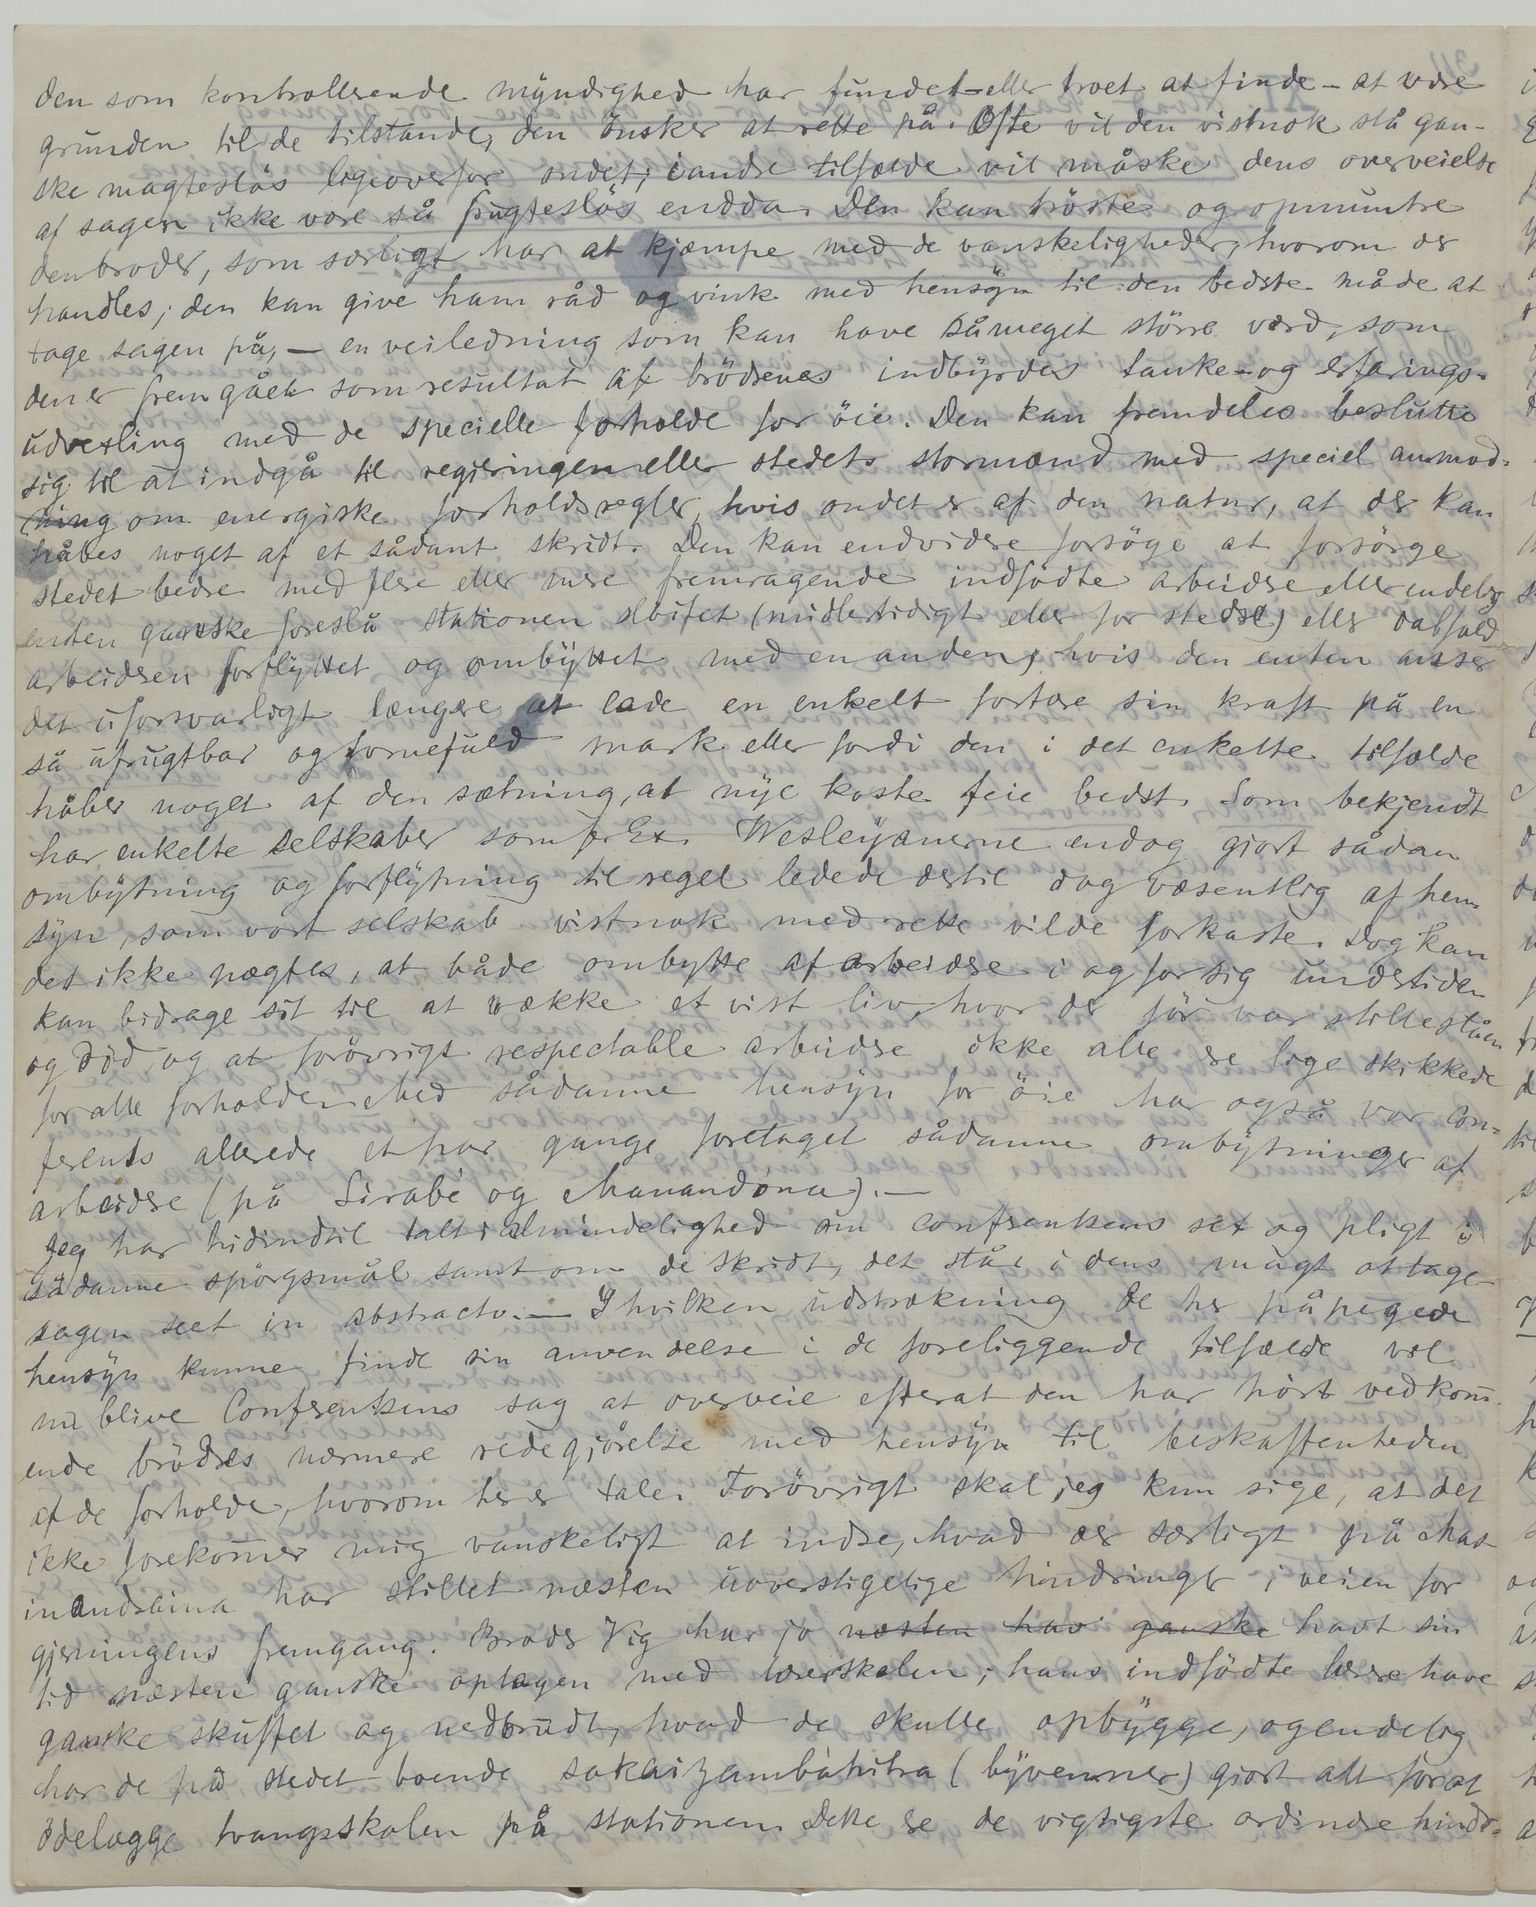 den som kontrollerende myndighed har fundet eller troet at finde - at være
grunden til de tilstande, den ønsker at rette på. Ofte vil den vistnok stå gan-
ske magtesløs ligeoverfor ondet; i andre tilfælde vil måske dens overveielse
af sagen ikke være så frugtesløs endda. Den kan trøste og opmuntre
den broder, som særligt har at kjæmpe med de vanskeligheder, hvorom der
handles; den kan give ham råd og vink med hensyn til den bedste måde at
tage sagen på, — en veiledning som kan have såmeget større værd, som
den er fremgået som resultat af brødrenes indbyrdes tanke- og erfarings-
udvexling med de specielle forholde for øie. Den kan fremdeles beslutte
sig til at indgå til regjeringen eller stedets stormænd med speciel anmod-
ning om energiske forholdsregler, hvis ondet er af den natur, at der kan
håbes noget af et sådant skridt. Den kan endvidere forsøge at forsørge
stedet bedre med flere eller mere fremragende indfødte arbeidere eller endelig
enten ganske foreslå stationen sløifet (midlertidigt eller for stedse) eller ialfald
arbeideren forflyttet og ombyttet med en anden, hvis den enten anser
det uforsvarligt længere at lade en enkelt fortære sin kraft på en
så ufrugtbar og tornefuld mark eller fordi den i det enkelte tilfælde
håber noget af den sætning, at nye koste feie bedst. Som bekjendt
har enkelte selskaber som f. Ex. Wesleyanerne endog gjort sådan
ombytning og forflytning til regel ledede dertil dog væsentlig af hen-
syn, som vort selskab vistnok med rette vilde forkaste. Dog kan
det ikke nægtes, at både ombytte af arbeidere i og for sig undertiden
kan bidrage sit til at vække et vist liv, hvor der før var stilleståen
og død, og at forøvrigt respectable arbeidere ikke alle ere lige skikkede
for alle forholde. Med sådanne hensyn for øie har også vor con-
ferents allerede et par gange foretaget sådanne ombytninger af
arbeidere (på Sirabé og Manandóna). —
Jeg har hidindtil talt i almindelighed om conferentsens ret og pligt i
sådanne spørgsmål samt om de skridt, det står i dens magt at tage
sagen seet in abstracto. — I hvilken udstrækning de her påpegede
hensyn kunne finde sin anvendelse i de foreliggende tilfælde vil
nu blive Conferentsens sag at overveie efterat den har hørt vedkomm-
ende brødres nærmere redegjørelse med hensyn til beskaffenheden
af de forholde, hvorom her er tale. Forøvrigt skal jeg kun sige, at det
ikke forekommer mig vanskeligt at indse, hvad der særligt på Mas-
inandraina har stillet næsten uoverstigelige hindringer i veien for
gjerningens fremgang. Broder Vig har jo næsten hav ganske havt sin
tid næsten ganske optagen med lærerskolen; hans indfødte lærere have
ganske skuffet og nedbrudt, hvad de skulle opbygge, og endelig
har de på stedet boende sakaizambahitra (byvenner) gjort alt for at
ødelægge tvangsskolen på stationen. Dette ere de vigtigste ordinære hindr-